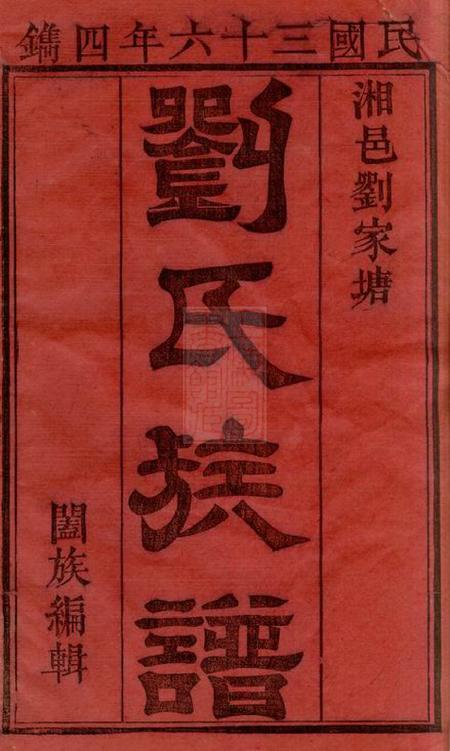 民國三十六年四鐫
湘邑劉家塘
劉氏族譜
闔族編輯